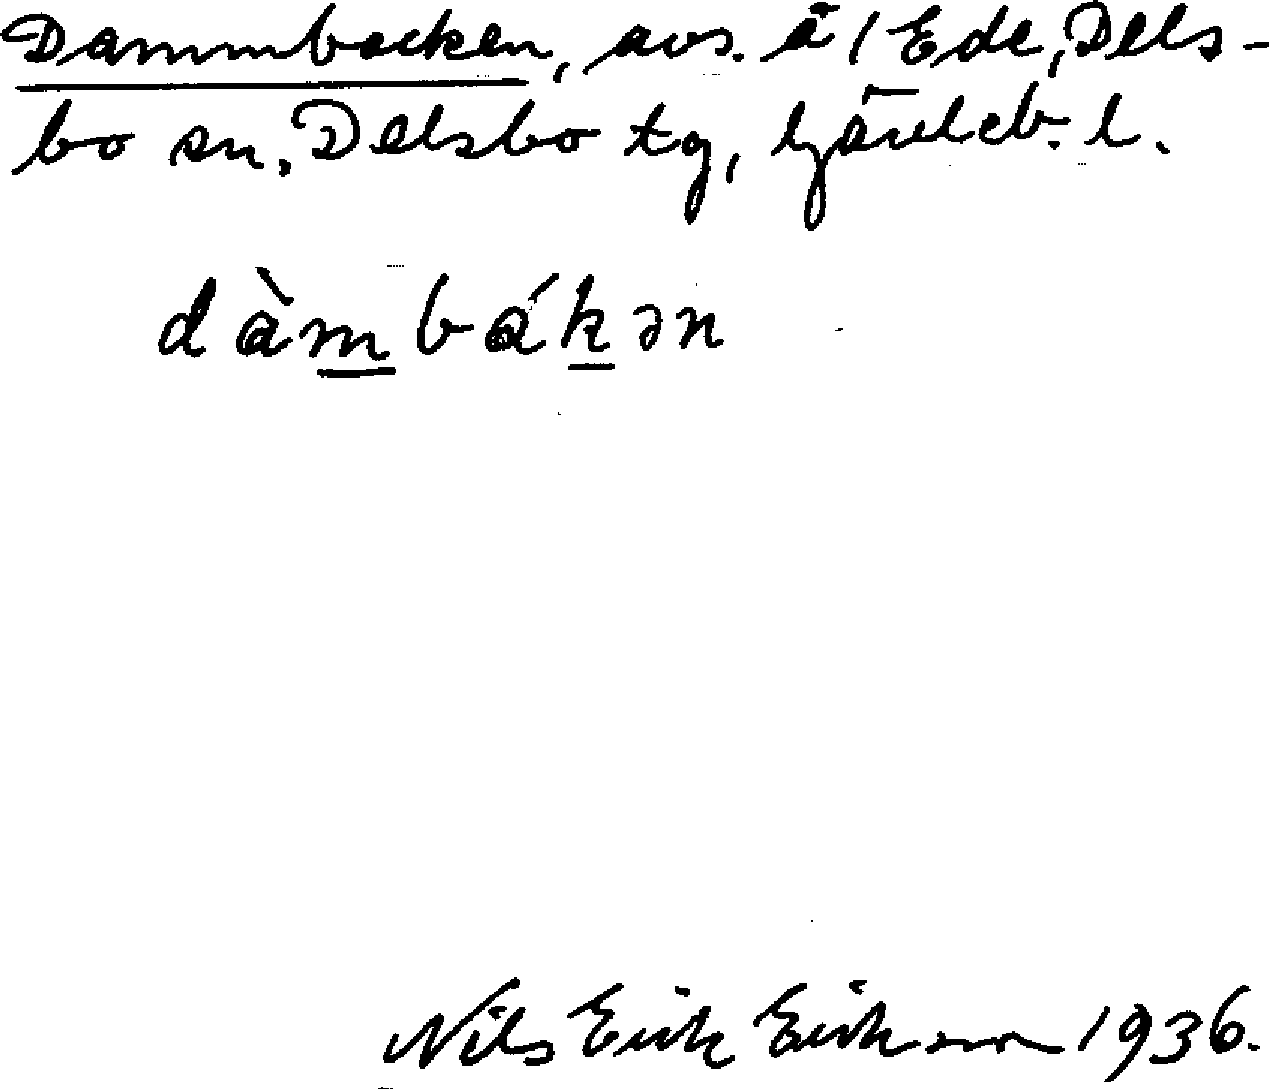 Dammbacken, avs. å / Ede, Dels-
bo sn, Delsbo tg, Gävleb. l.
dàmbákən
Nils Erik Erikson 1936.